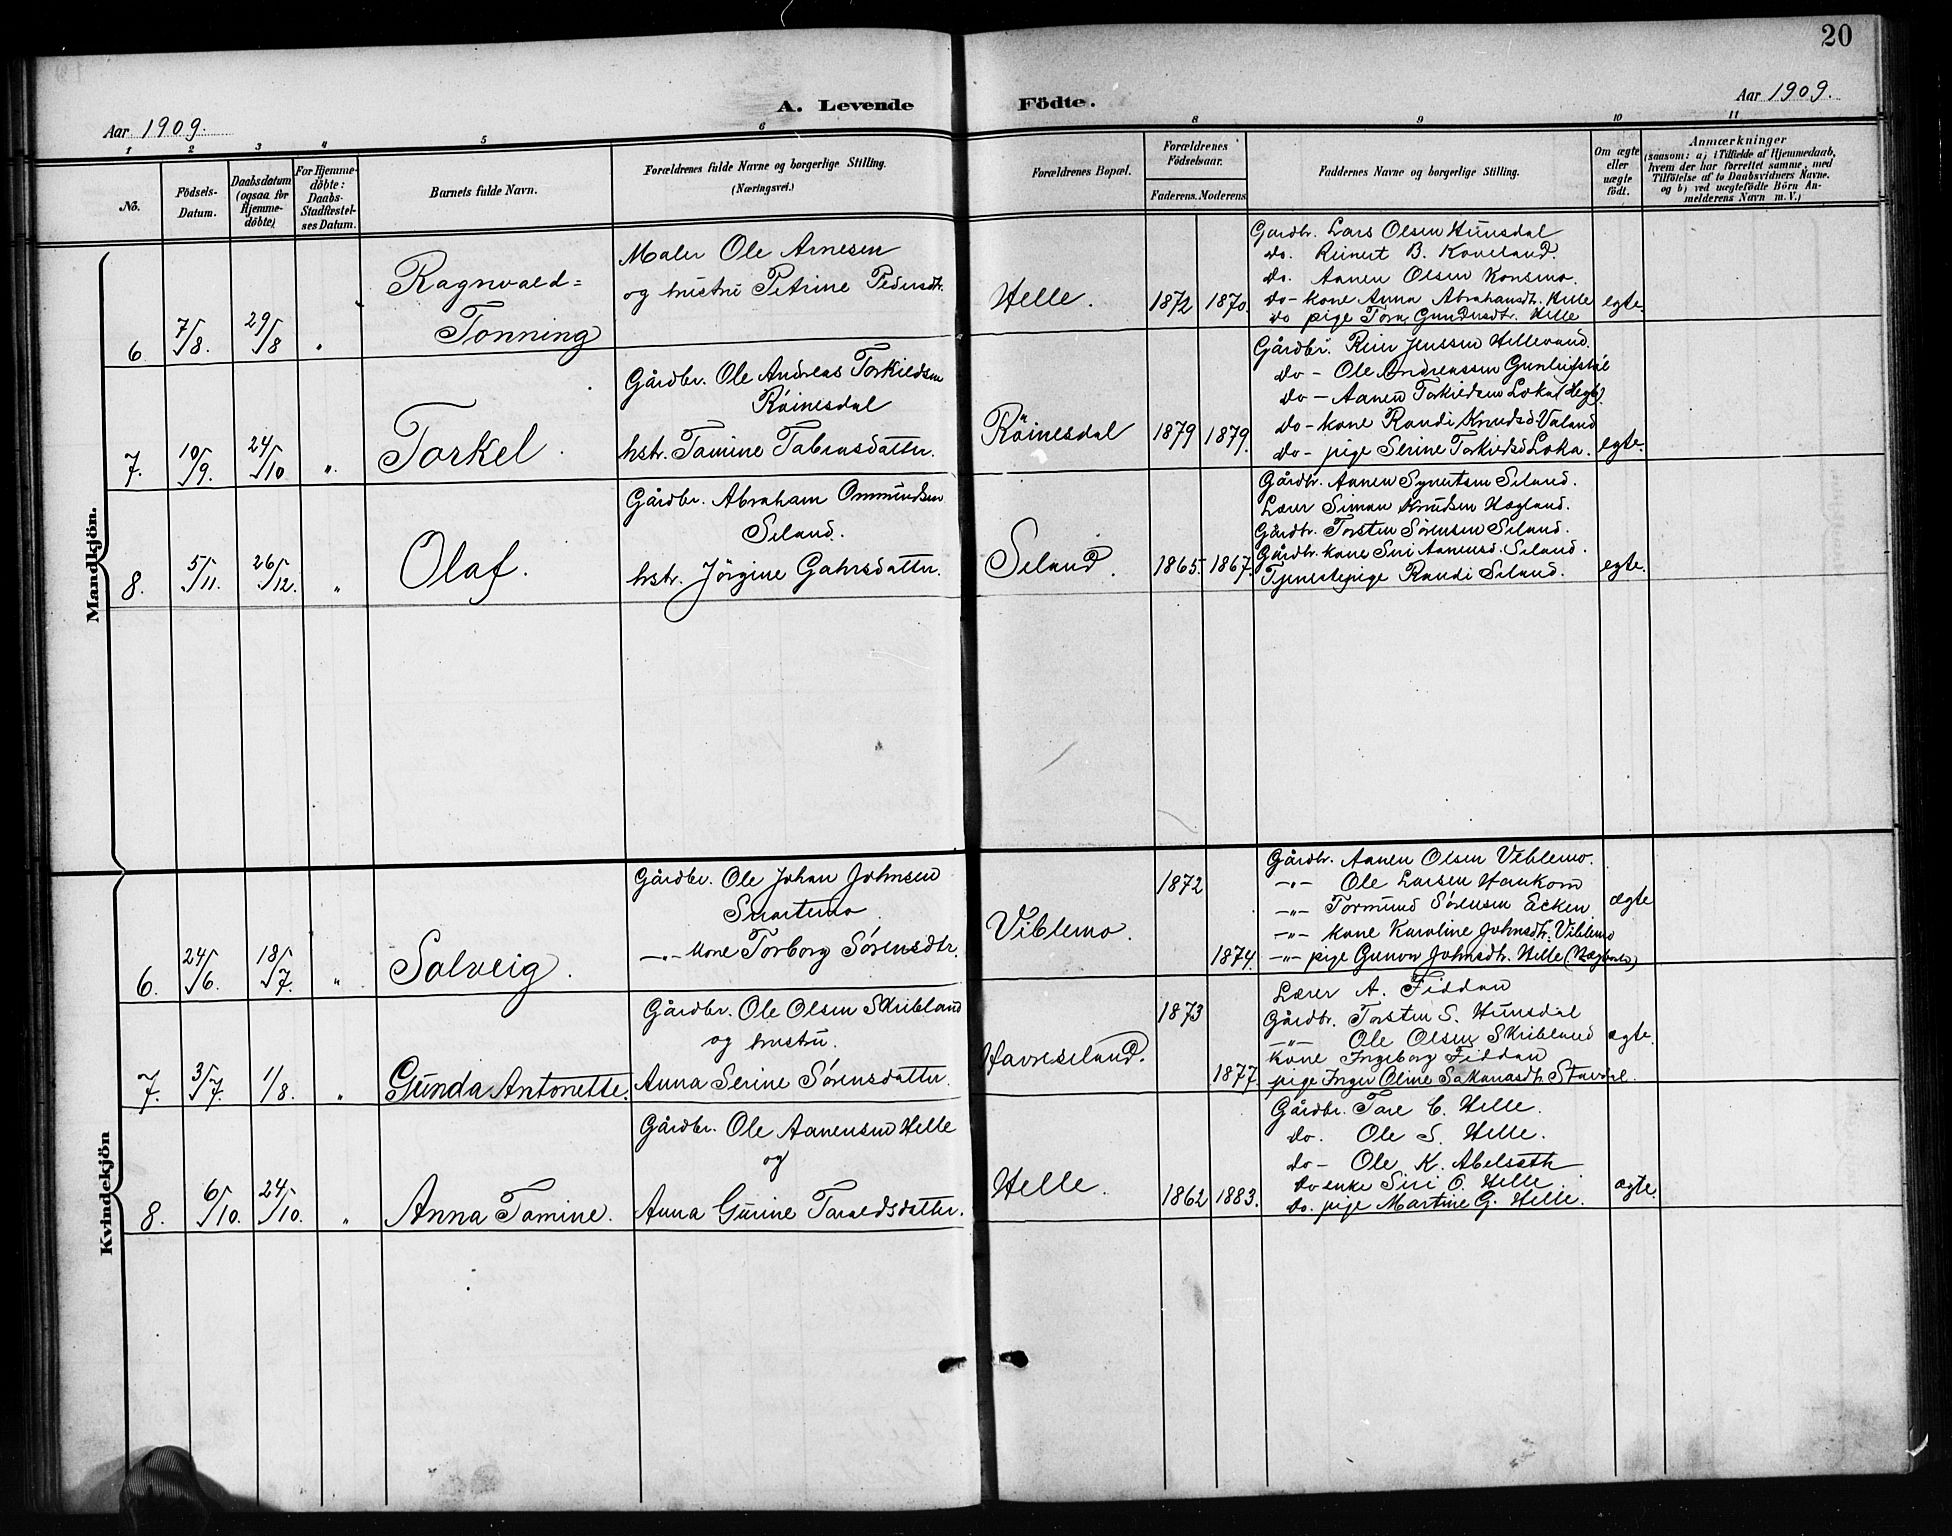 20
A. Levende Födte.
Aar 1909.
Aar 1909.
1 2 3 4 5 6 8 9 10 11
No.
Födsels-Datum.
Daabsdatum (ogsaa for Hjemmedöbte)
For Hjemmedöbte: Daabs-Stadfæstelses Datum.
Barnets fulde Navn.
Forældrenes fulde Navne og borgerlige Stilling.
(Næringsvei.)
Forældrenes Bopæl.
Forældrenes Födselsaar.
Faderens. Moderens.
Faddernes Navne og borgerlige Stilling.
Om ægte eller uægte födt.
Anmærkninger
(saasom: a) i Tilfælde af Hjemmedaab, hvem der har forrettet samme, med Tilföielse af to Daabsvidners Navne, og b) ved uægtefödte Börn Anmelderens Navn m. V.)
Mandkjön.
6 7/8. 29/8 "
Ragnvald=
Tonning
Maler Ole Arnesen
og hustru Petrine Pedersdt.
Helle. 1872 1870.
Gardbr. Lars Olsen Hunsdal
do. Reinert B. Koveland.
do. Aanen Olsen Konsmo.
do - kone Anna Abrahamsdt. Helle
do pige Tora Gundersdt. Helle
egte.
7. 10/9. 24/10 ".
Torkel.
Gårdbr. Ole Andreas Torkildsen
Röinesdal
hstr. Tomine Tobensdatter.
Röinesdal 1879 1879.
Gårdbr. Reier Jenssen Hellevand.
do - Ole Andreassen
do - Aanen Torkildsen Loka
do - kone Randi Knudsd Valand
do - pige Serine Torkildsd Loka.
egte.
8. 5/11. 26/12. "
Olaf.
Gårdbr. Abraham Ommundsen
Seland.
hstr. Jörgine Gahrsdatter.
Seland. 1865. 1867.
Gårdbr. Aanen Syvertsen Seland.
Lærer Simon Knudsen Hægland.
Gårdbr. Torsten Sörensen Seland.
Gårdbr. kone Siri Aanensd. Seland.
Tjenestepige Randi Seland.
egte.
Kvindekjön
6. 24/6. 18/7. "
Solveig.
Gårdbr. Ole Johan Johnsen
Snartemo.
-"- kone Torborg Sörensdtr.
Viblemo. 1872 1874.
Gårdbr. Aanen Olsen Viblemo.
-"- Ole Larsen Haukom
-"- Tormund Sörensen Ecken
-"- kone Karoline Johnsdt. Viblemo
-"- pige Gunvor Johnsdt. Helle
ægte
7. 3/7. 1/8. "
Gunda Antonette.
Gårdbr. Ole Olsen Skribland
og hustru.
Anna Serine Sörensdatter.
Havreseland. 1873 1877.
Lærer A. Fiddan
Gårdbr. Torsten S. Hunsdal
-"- Ole Olsen Skribland
kone Ingeborg Fiddan
pige Inger Oline Sakariasdt. Stavdal.
ægte.
8. 6/10. 24/10. "
Anna Tomine.
Gårdbr. Ole Aanensen Helle
og
Anna Gurine Taraldsdatter.
Helle. 1862 1883.
Gårdbr. Tore C. Helle.
do. Ole S. Helle.
do - Ole K. Abelseth
do enke Siri O. Helle.
do. pige Martine G. Helle.
ægte.